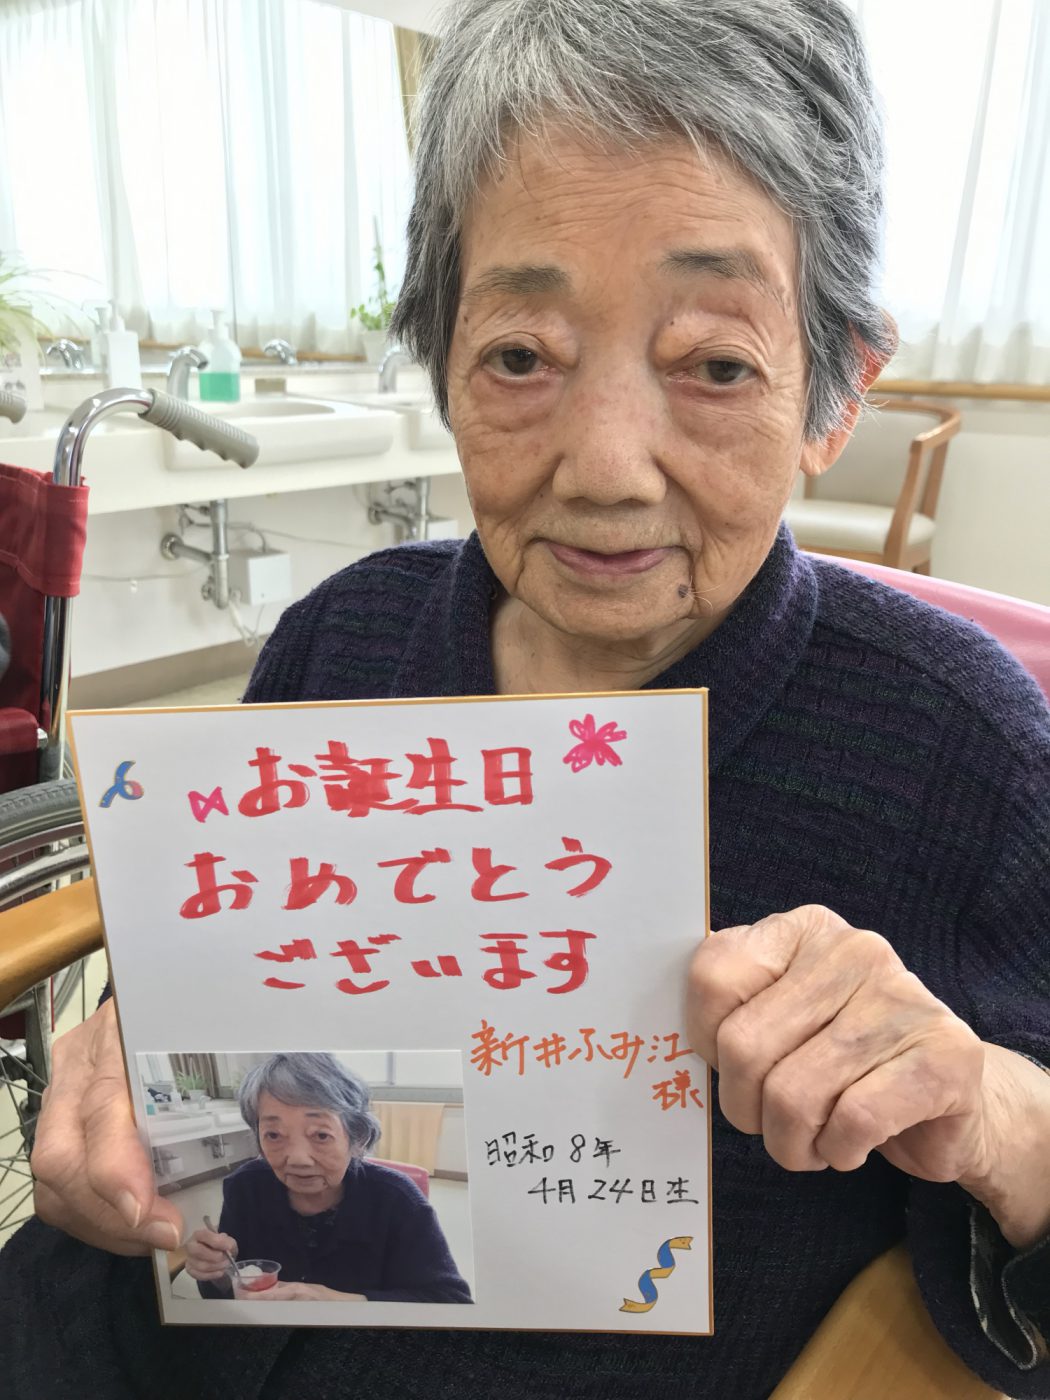 お誕生日
おめでとう
ございます
新井ふみ江
様
昭和8年
4月24日生